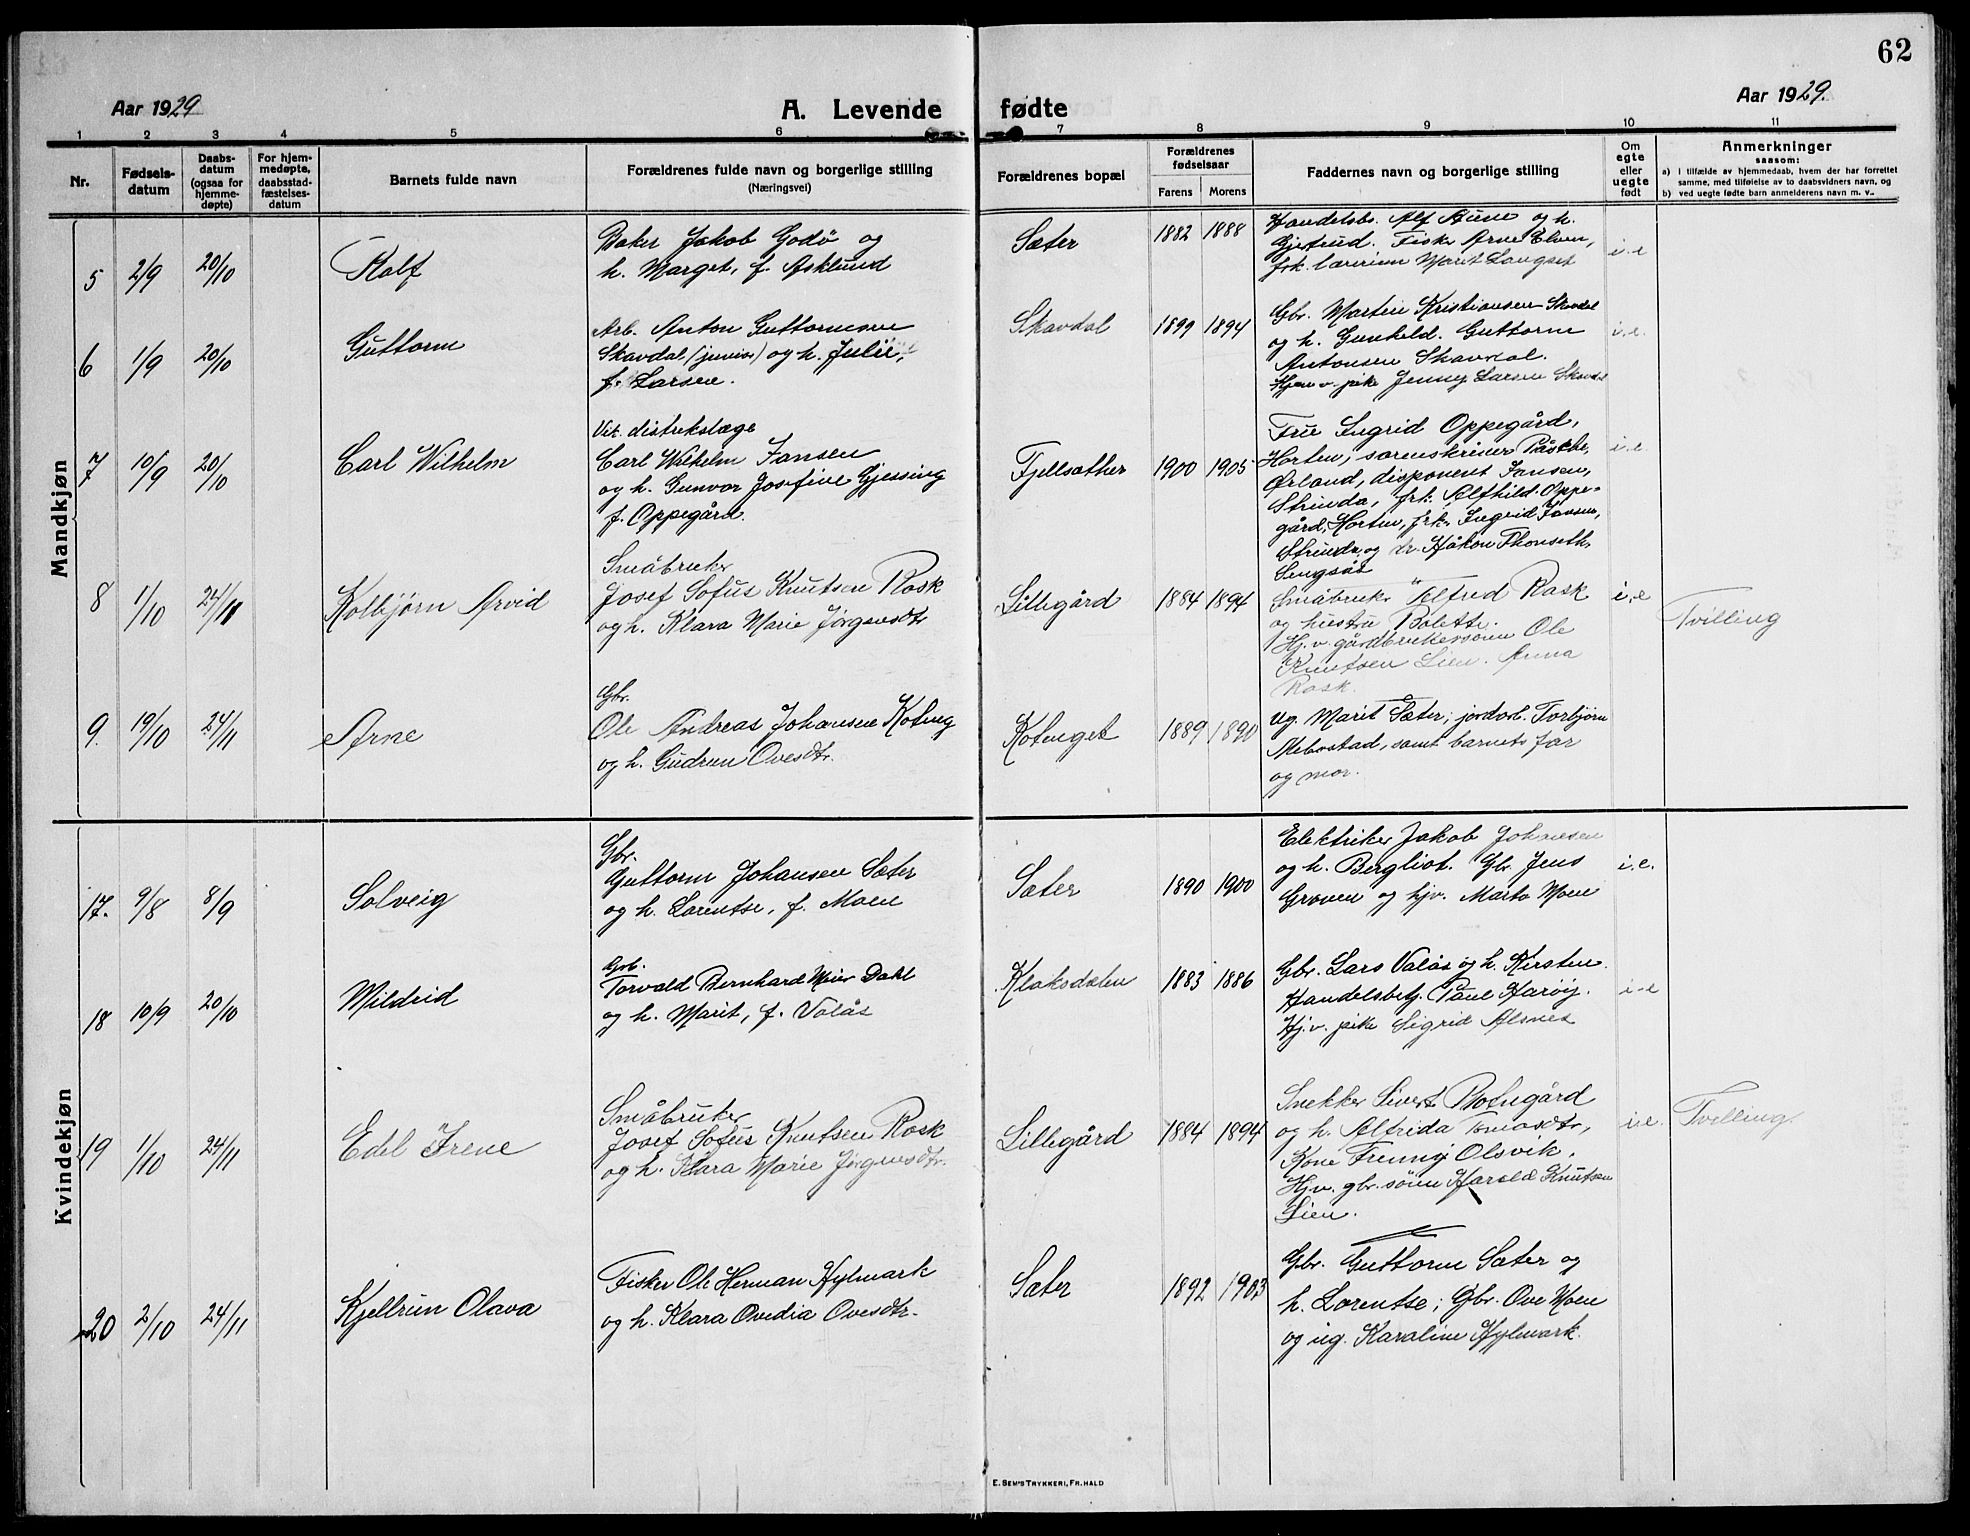 62
Aar 1929
A. Levende fødte
Aar 1929.
1 2 3 4 5 6 7 8 9 10 11
Nr.
Fødsels-
datum
Daabs-
datum
(ogsaa for
hjemme-
døpte)
For hjem-
medøpte,
daabsstad-
fæstelses-
datum
Barnets fulde navn
Forældrenes fulde navn og borgerlige stilling
(Næringsvei)
Forældrenes bopæl
Forældrenes
fødselsaar
Farens Morens
Faddernes navn og borgerlige stilling
Om
egte
eller
uegte
født
Anmerkninger
saasom:
a) i tilfælde av hjemmedaab, hvem der har forrettet
samme, med tilføielse av to daabsvidners navn, og
b) ved uegte fødte barn anmelderens navn m. v..
Mandkjøn
5 2/9 20/10 Rolf
Baker Jakob Godø og
h. Marget, f. Asklund
Sæter 1882 1888
Handelsb. Alf Aune og h.
Gjertrud. Fisk. Arne Elven,
frk. lærerinne Marit Langset
i.e
6 1/9 20/10 Guttorm
Arb. Anton Guttormsen
Skavdal, (junior) og h. Julie,
f. Larsen.
Skavdal 1899 1894
Gbr. Martin Kristiansen Skavdal
og h. Gunhild. Guttorm
Antonsen Skavdal.
Hjem v. pike Jenny Larsen Skavdal
i.e.
7 10/9 20/10 Carl Wilhelm
Vik. distrikslæge
Carl Wilhelm Jansen
og h. Gunvor Josefine Gjessing
f. Oppegård.
Fjellsæther 1900 1905
Frue Ingrid Oppegård,
Horten, sorenskriver
Ørland, disponent Jansen,
Strinda, frk. Alfhild Oppe-
gård, Horten, frk. Ingrid Jansen,
Strinda, og dr. Håkon Thonseth,
Lengsås
i.e
8 1/10 24/11 Kolbjørn Arvid
Småbruker
Josef Sofus Knutsen Rask
og h. Klara Marie Jørgensdtr
Lillegård 1884 1894
Småbruker Alfred Rask
og hustru Bolette.
Hj. v. gårdbrukersønn Ole
Knutsen Lien. Anna
Rask.
i.e
Tvilling
9. 19/10 24/11 Arne
Gbr.
Ole Andreas Johansen Koteng
og h. Gudrun Ovesdtr.
Kotenget 1889 1890
Ug. Marit Sæter; jordarb. Torbjørn
Mebostad, samt barnets far
og mor.
Kvindekjøn
17. 9/8 8/9 Solveig
Gbr.
Guttorm Johansen Sæter
og h. Lorentse, f. Moen
Sæter 1890 1900
Elektriker Jakob Johnsen
og h. Bergliot. Gbr. Jens
Groven og hjv. Marta Moen
i.e.
18 10/9 20/10 Mildrid
Arb.
Torvald Bernhard Meier Dahl
og h. Marit, f. Valås
Klaksdalen 1883 1886
Gbr. Lars Valås og h. Kirsten.
Handelsbetj. Paul Harøy.
Hj. v. pike Sigrid Alsnes
i-e
19 1/10 24/11 Edel Irene
Småbruker
Josef Sofus Knutsen Rask
og h. Klara Marie Jørgensdtr.
Lillegård 1884 1894
Snekker Sivert Botngård
og h. Alfrida Tomasdtr,
Kone Frenny Olsvik.
Hj.v. gbr.sønn Harald Knutsen
Lien.
i.e.
Tvilling.
20 2/10 24/11 Kjellrun Olava
Fisker Ole Herman Hylmark
og h. Klara Ovedia Ovesdtr.
Sæter 1892 1903
Gbr. Guttorm Sæter og
h. Lorentse; Gbr. Ove Moen
og ug. Karaline Hylmark.
E. SEM'S TRYKKERI, FR.HALD